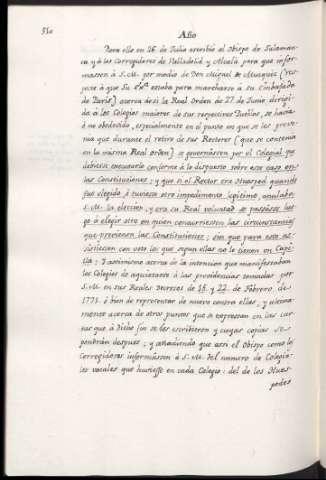 510
Año
Para ello en 26 de Julio escribió al Obispo de Salaman-
ca y à los Corregidores de Valladolid y Alcalà para que infor-
massen à S. M. por medio de Don Miguel de Muzquiz (res-
pecto à que Su estaba para marcharse a su Embaxada
de Paris) acerca de si la Real Orden de 27 de Junio dirigi-
da à los Colegios mayores de sus respectivos Pueblos, se havia
ò no obedecido, especialmente en el punto en que se les preve-
nia que durante el retiro de sus Rectores (que se contenia
en la misma Real Orden) se governassen por el Colegial que
debiesse executarlo conforme à lo dispuesto sobre este caso en
las Constituciones; y que si el Rector era Huesped quando
fue elegido, ò tuviesse otro impedimento legitimo, anulaba
S. M. la eleccion, y era su Real voluntad se passasse lue-
go à elegir otro en quien concurriessen las circunstancias
que previenen las Constituciones; sin que para esto as-
sistiessen con voto los que segun ellas no le tienen en Capi-
lla; Y assimismo acerca de la intencion que manifestaban
los Colegios de aquietarse à las providencias tomadas por
S. M. en sus Reales Decretos de 15 y 22 de Febrero de
1771. ò bien de representar de nuevo contra ellas, y ultima-
mente acerca de otros puntos que se expressan en las car-
tas que à dicho fin se les escribieron y cuyas copias se
pondràn despues; y añadiendo que assi el Obispo como los
Corregidores informassen à S. M. del numero de Colegia-
les vocales que huviesse en cada Colegio: del de los Hues-
pedes